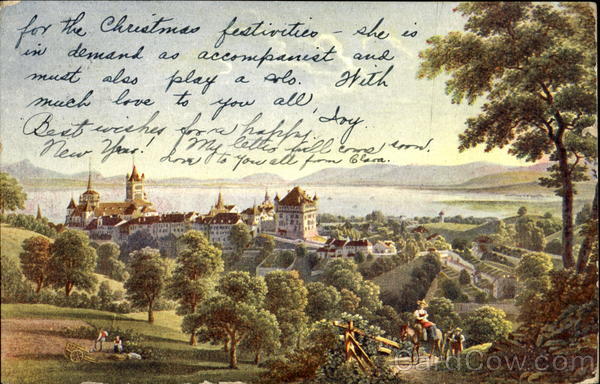 for the Christmas festivities – she is
in demand as accompanist and
must also play a solo. With
much love to you all,
Joy.
Best wishes for a happy
New Year! My letter will come soon.
Love to you all from Clara.
CardCow.com